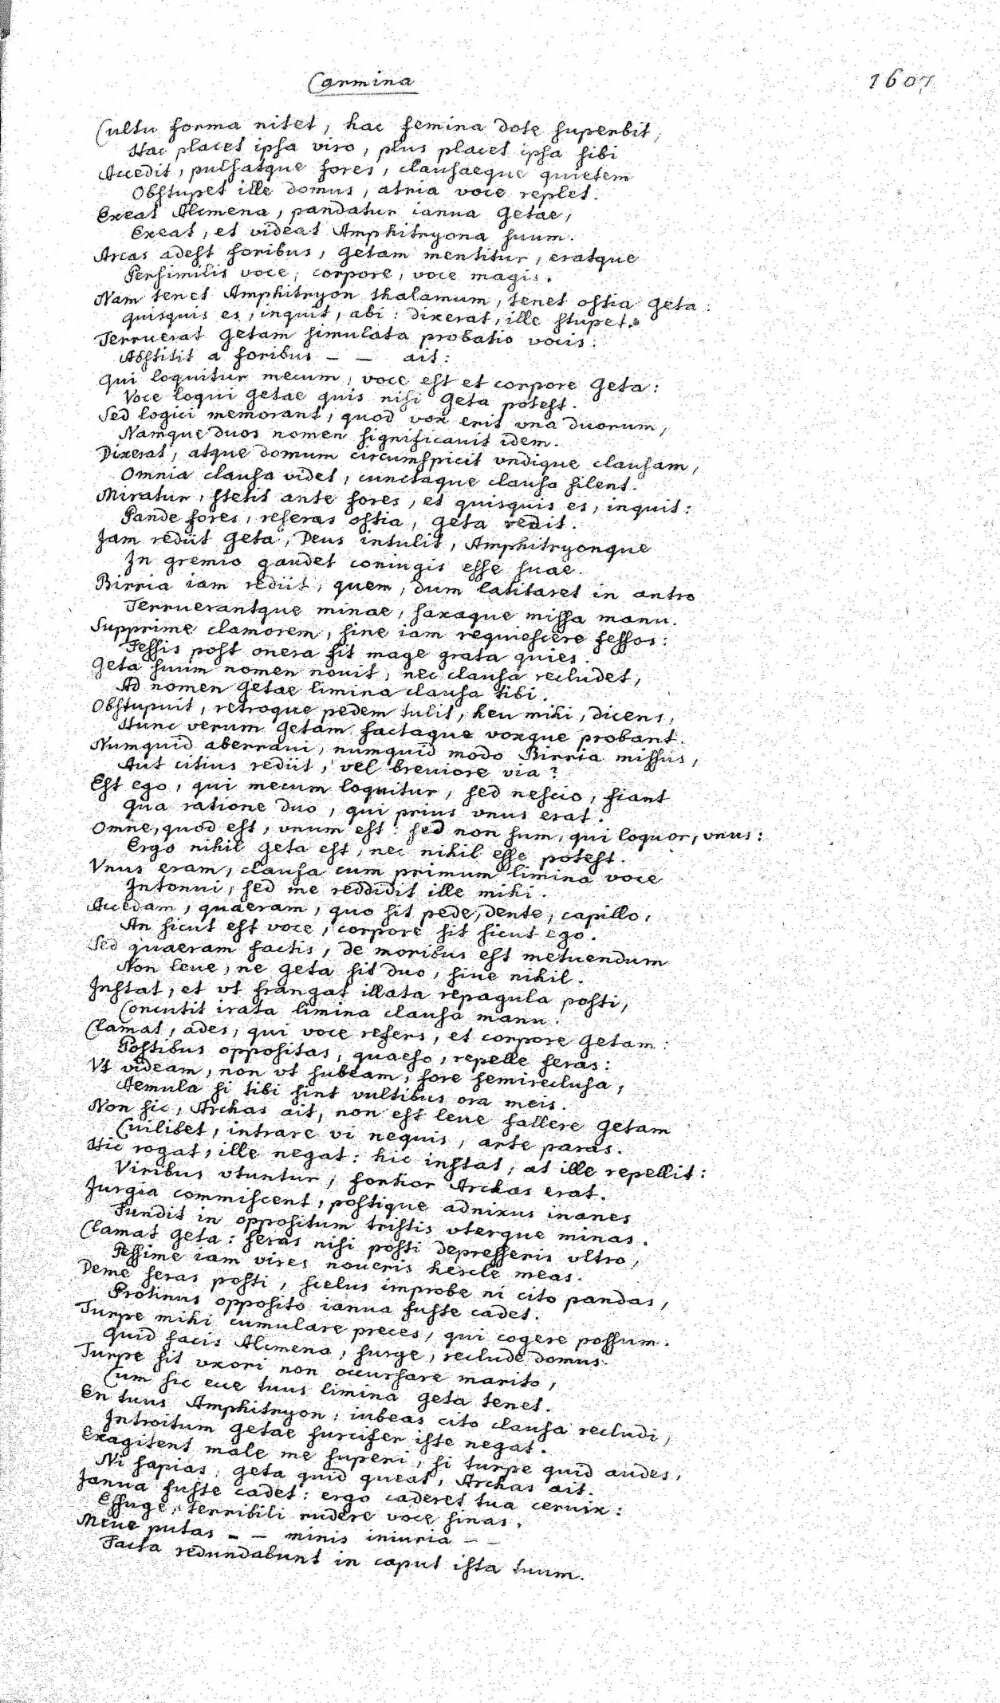 Carmina 1607
Cultu forma nitet, hac femina dote superbit,
Hac placet ipsa viro, plus placet ipsa sibi
Accedit, pulsatque fores, clausaeque quietem
Obstupet ille domus, atria voce replet.
Exeat Alcmena, pandatur ianua Getae,
Exeat, et videat Amphitryona suum.
Arcas adest foribus, Getam mentitur, eratque
Persimilis voce, corpore, voce magis.
Nam tenet Amphitryon thalamum, tenet ostia Geta:
quisquis es, inquit, abi: dixerat, ille stupet.
Terruerat Getam simulata probatio vocis:
Abstitit a foribus – – ait:
Qui loquitur mecum, voce est et corpore Geta:
Voce loqui Getae quis nisi Geta potest.
Sed logici memorant, quod vox erit vna duorum,
Namque duos nomen significauit idem.
Dixerat, atque domum circumspicit vndique clausam,
Omnia clausa videt, cunctaque clausa silent.
Miratur, stetit ante fores, et quisquis es, inquit:
Pande fores, reseras ostia, Geta redit.
Jam rediit Geta, Deus intulit, Amphitryonque
In gremio gaudet coniugis esse suae.
Birria iam rediit, quem, dum latitaret in antro
Terruerantque minae, saxaque missa manu.
Supprime clamorem, sine iam requiescere fessos:
Fessis post onera sit mage grata quies.
Geta suum nomen nouit, nec clausa recludet,
Ad nomen Getae limina clausa tibi.
Obstupuit, retroque pedem tulit, heu mihi, dicens,
Hunc verum Getam factaque voxque probant.
Numquid aberraui, numquid modo Birria missus,
Aut citius rediit, vel breuiore via?
Est ego, qui mecum loquitur, sed nescio, fiant
Qua ratione duo, qui prius vnus erat.
Omne, quod est, vnum est: sed non sum, qui loquor, vnus:
Ergo nihil Geta est, nec nihil esse potest.
Vnus eram, clausa cum primum limina voce
Intonui, sed me reddidit ille mihi.
Accedam, quaeram, quo sit pede, dente, capillo,
An sicut est voce, corpore sit sicut ego.
Sed quaeram factis, de moribus est metuendum
Non leue, ne Geta sit duo, siue nihil.
Instat, et vt frangat illata repagula posti,
Concutit irata limina clausa manu.
Clamat, ades, qui voce refers, et corpore Getam:
Postibus oppositas, quaeso, repelle seras:
Vt videam, non vt subeam, fore semireclusa,
Aemula si tibi sint vultibus ora meis.
Non sic, Archas ait, non est leue fallere Getam
Cuilibet, intrare vi nequis, arte paras.
Hic rogat, ille negat: hic instat, at ille repellit:
Viribus vtuntur, fortior Archas erat.
Jurgia commiscent, postique adnixus inanes
Fundit in oppositum tristis vterque minas.
Clamat Geta: seras nisi posti depresseris vltro,
Pessime iam vires noueris hercle meas.
Deme seras posti, scelus improbe ni cito pandas,
Protinus opposito ianua fuste cadet.
Turpe mihi cumulare preces, qui cogere possum.
Quid facis Alcmena, surge, reclude domus.
Turpe sit vxori non occursare marito,
Cum sic ecce tuus limina Geta tenet.
En tuus Amphitryon: iubeas cito clausa recludi,
Introitum Getae furcifer iste negat.
Exagitent male me superi, si turpe quid audes,
Ni sapias: Geta quid queat, Archas ait.
Janua fuste cadet: ergo caderet tua ceruix:
Effuge, terribili rudere voce sinas.
Mene putas – – minis iniuria – –
Facta redundabunt in caput ista tuum.